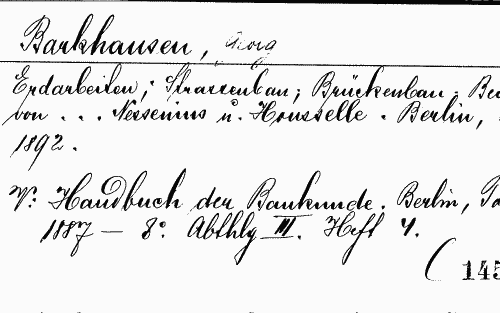 Barkhausen, Georg
Erdarbeiten; Strassenbau; Brückenbau. Be
von . . . Nessenius u. Housselle. Berlin,
1892.
V: Handbuch der Baukunde. Berlin, To
1887 — 8º. Abthlg III. Heft 4.
( 145